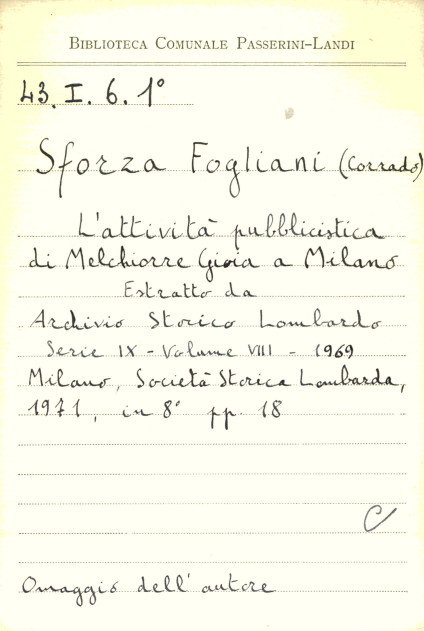 BIBLIOTECA COMUNALE PASSERINI-LANDI
43. I. 6. 1°
Sforza Fogliani (Corrado)
L'attività pubblicistica
di Melchiorre Gioia a Milano
Estratto da
Archivio Storico Lombardo
Serie IX - Volume VIII - 1969
Milano, Società Storica Lombarda,
1971, in 8° pp. 18
C
Omaggio dell'autore